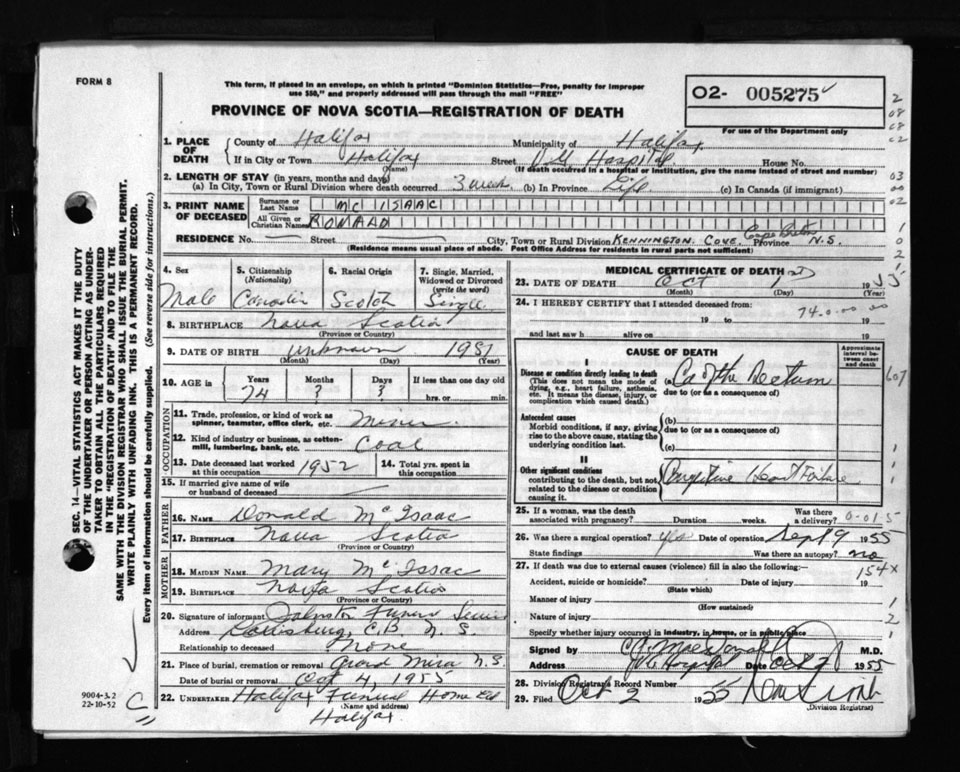 FORM 8
This form, if placed in an envelope, on which is printed "Dominion Statistics—Free, penalty for improper
use $50," and properly addressed will pass through the mail "FREE"
PROVINCE OF NOVA SCOTIA—REGISTRATION OF DEATH
O2- 005275
For use of the Department only
1. PLACE OF DEATH
County of Halifax Municipality of Halifax
If in City or Town Halifax Street V.G. Hospital House No.
(Name) (If death occurred in a hospital or institution, give the name instead of street and number)
2. LENGTH OF STAY (in years, months and days)
(a) In City, Town or Rural Division where death occurred 3 week (b) In Province Life (c) In Canada (if immigrant)
3. PRINT NAME OF DECEASED
Surname or Last Name MC ISAAC
All Given or Christian Names RONALD
RESIDENCE No. Street City, Town or Rural Division KENNINGTON COVE Cape Breton Province N.S.
(Residence means usual place of abode. Post Office Address for residents in rural parts not sufficient)
4. Sex Male
5. Citizenship (Nationality) Canadian
6. Racial Origin Scotch
7. Single, Married, Widowed or Divorced (write the word) Single
8. BIRTHPLACE Nova Scotia
(Province or Country)
9. DATE OF BIRTH unknown 1981
(Month) (Day) (Year)
10. AGE in Years 74 Months ? Days ? If less than one day old hrs. or min.
OCCUPATION
11. Trade, profession, or kind of work as spinner, teamster, office clerk, etc. Miner
12. Kind of industry or business, as cotten-mill, lumbering, bank, etc. Coal
13. Date deceased last worked at this occupation 1952
14. Total yrs. spent in this occupation
15. If married give name of wife or husband of deceased
FATHER
16. NAME Donald McIsaac
17. BIRTHPLACE Nova Scotia
(Province or Country)
MOTHER
18. MAIDEN NAME Mary McIssac
19. BIRTHPLACE Nova Scotia
(Province or Country)
20. Signature of informant Johnston Funeral Service
Address Louisburg, C.B. N.S.
Relationship to deceased None
21. Place of burial, cremation or removal Grand Mira N.S.
Date of burial or removal Oct 4, 1955
22. UNDERTAKER Halifax Funeral Home Ltd
(Name and address)
Halifax
MEDICAL CERTIFICATE OF DEATH
23. DATE OF DEATH Oct 1 1955
(Month) (Day) (Year)
24. I HEREBY CERTIFY that I attended deceased from:
74.0.00 00
19 to 19
and last saw h alive on 19
CAUSE OF DEATH
Approximate interval between onset and death
I
Disease or condition directly leading to death
(This does not mean the mode of dying, e.g., heart failure, asthenia, etc. It means the disease, injury, or complication which caused death.)
(a) Ca of the Rectum
due to (or as a consequence of)
607
Antecedent causes
Morbid conditions, if any, giving rise to the above cause, stating the underlying condition last.
(b)
due to (or as a consequence of)
(c)
II
Other significant conditions
contributing to the death, but not related to the disease or condition causing it.
Congestive Heart Failure
25. If a woman, was the death associated with pregnancy? Duration weeks. Was there a delivery?
0-01-5
26. Was there a surgical operation? yes Date of operation Sept 9 1955
State findings Was there an autopsy? no
27. If death was due to external causes (violence) fill in also the following:—
154x
Accident, suicide or homicide? Date of injury 19
(State which)
Manner of injury
(How sustained)
Nature of injury
Specify whether injury occurred in industry, in home, or in public place
Signed by MacDonald M.D.
Address V.G. Hospital Date Oct 2 1955
28. Division Registrar's Record Number
29. Filed Oct 2 1955
(Division Registrar)
SEC. 14—VITAL STATISTICS ACT MAKES IT THE DUTY
OF THE UNDERTAKER OR PERSON ACTING AS UNDER-
TAKER TO OBTAIN ALL THE PARTICULARS REQUIRED
IN THE "REGISTRATION OF DEATH" AND TO FILE THE
SAME WITH THE DIVISION REGISTRAR WHO SHALL ISSUE THE BURIAL PERMIT.
WRITE PLAINLY WITH UNFADING INK. THIS IS A PERMANENT RECORD.
Every item of Information should be carefully supplied. (See reverse side for instructions.)
9004-3.2
22-10-52
C
2
08
08
02
03
00
02
1
0
2
1
1
1
1
2
1